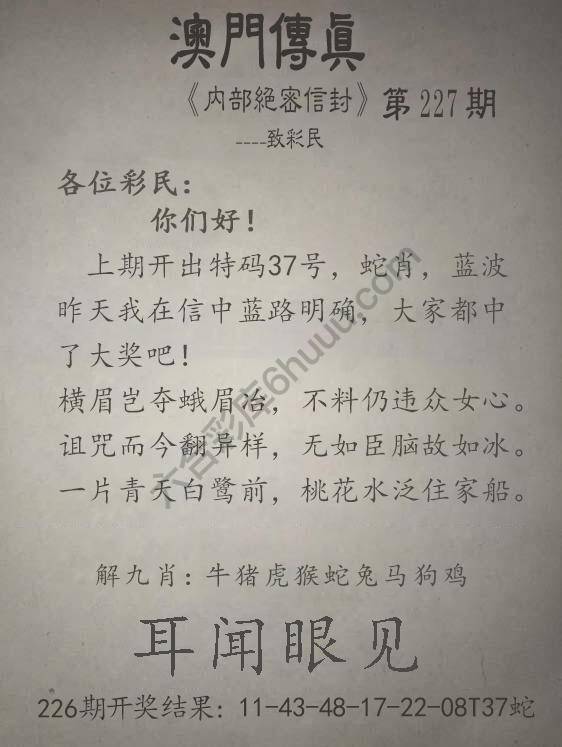 澳門傳眞
《内部絕密信封》第227期
----致彩民
各位彩民：
你们好！
上期开出特码37号，蛇肖，蓝波
昨天我在信中蓝路明确，大家都中
了大奖吧！
横眉岂夺蛾眉冶，不料仍违众女心。
诅咒而今翻异样，无如臣脑故如冰。
一片青天白鹭前，桃花水泛住家船。
解九肖：牛猪虎猴蛇兔马狗鸡
耳闻眼见
226期开奖结果：11-43-48-17-22-08T37蛇
六合彩库6huuu.com